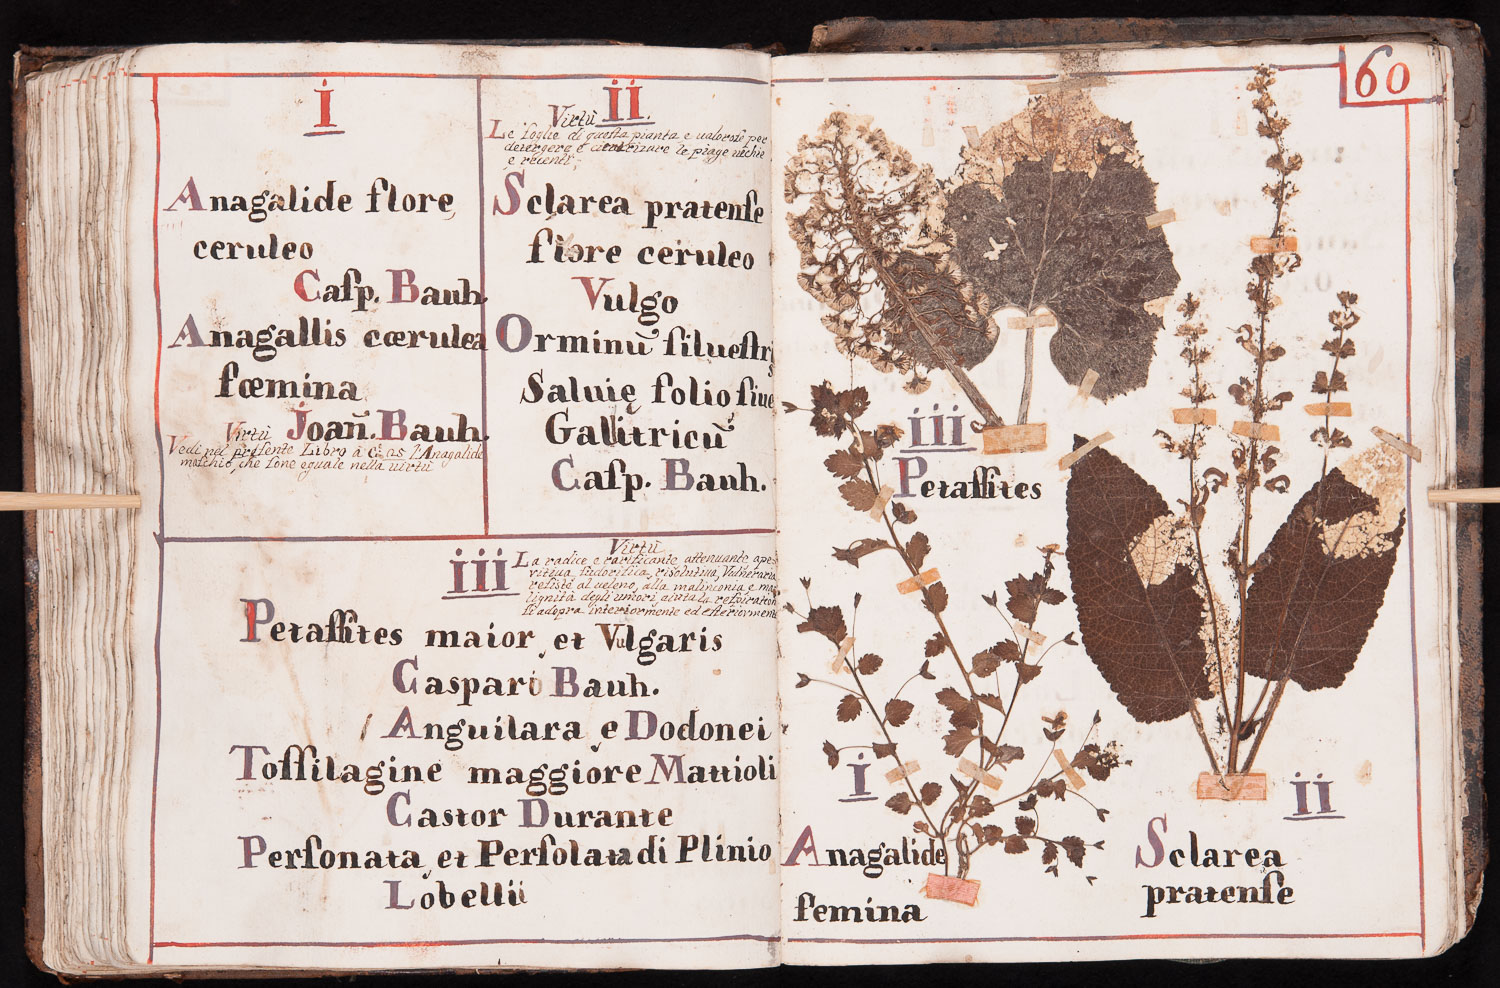 i
Anagalide flore
ceruleo
Casp. Bauh.
Anagallis cœrulea
fœmina
Joañ. Bauh.
Virtù
Vedi nel presente Libro à C. 25 l'Anagalide
maschio, che sono eguale nella virtù
ii
Virtù
Le foglie di questa pianta e ualorose per
detergere e cicatrizare le piage uechie
e recenti,
Sclarea pratense
fiore ceruleo
Vulgo
Orminũ siluestris
Saluię folio siue
Gallitricũ
Casp. Bauh.
iii
Virtù
La radice e rarificante, attenuante, ape-
ritiua, sudorifica, risolutiua, Vulneraria
resiste al ueleno, alla malinconia e ma
lignità degli umori, aiuta la respiration
si adopra interiormente ed esteriorment
Petassites maior et Vulgaris
Caspari Bauh.
Anguilara e Dodonei
Tossilagine maggiore Mattioli
Castor Durante
Personata et Persolata di Plinio
Lobellii
60
iii
Petassites
i
Anagalide
femina
ii
Sclarea
pratense